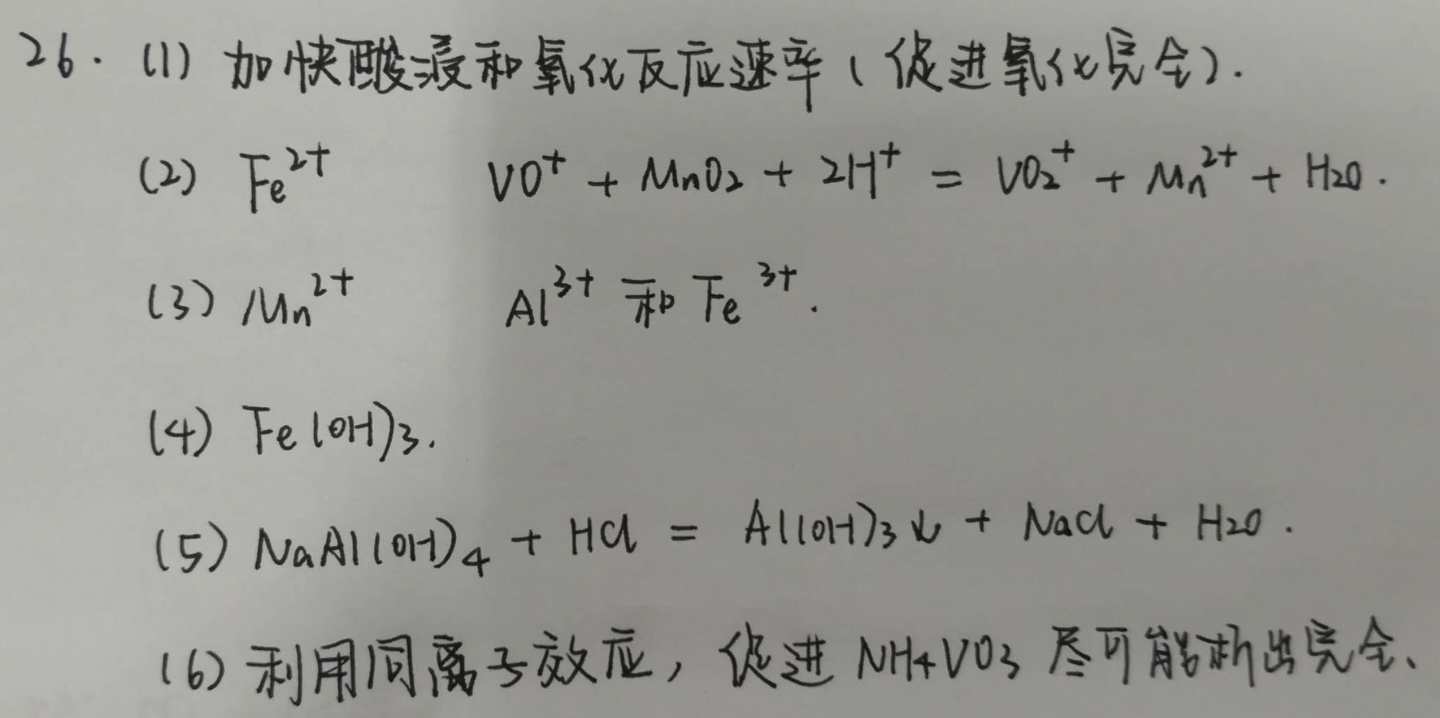 26. (1) 加快酸浸和氧化反应速率(促进氧化完全).
(2) Fe²⁺ VO⁺ + MnO₂ + 2H⁺ = VO₂⁺ + Mn²⁺ + H₂O.
(3) Mn²⁺ Al³⁺ 和 Fe³⁺.
(4) Fe(OH)₃.
(5) NaAl(OH)₄ + HCl = Al(OH)₃↓ + NaCl + H₂O.
(6) 利用同离子效应, 促进 NH₄VO₃ 尽可能析出完全、